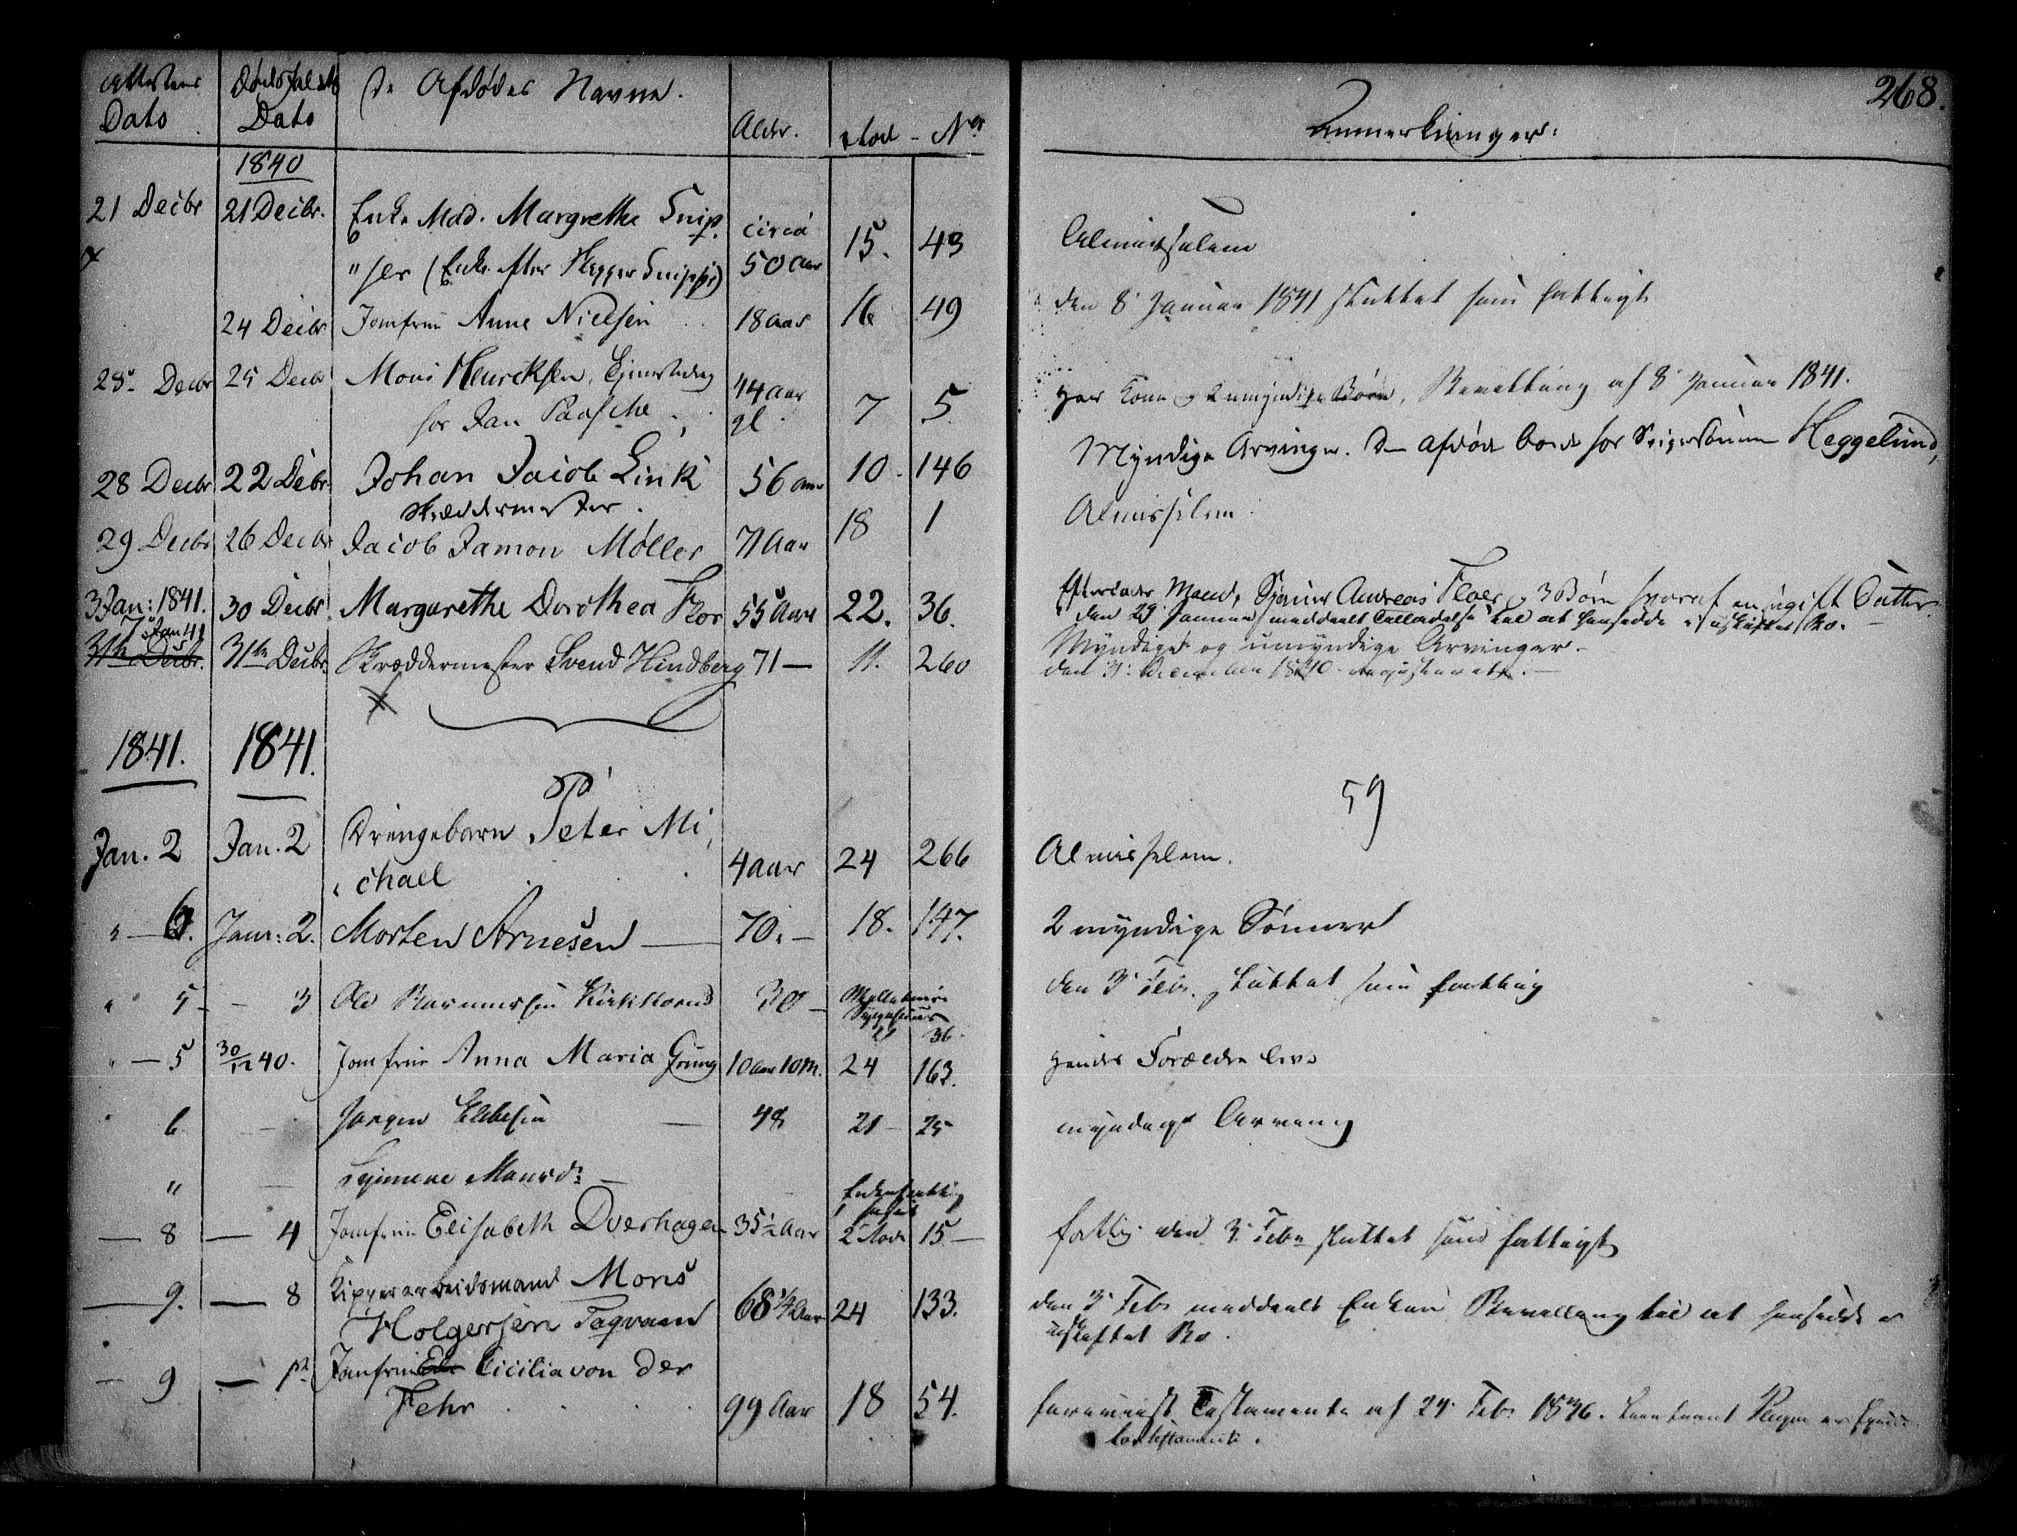 268.
Attestens Dødsfaldets De Afdødes Navne.
Dato Dato Alder. Rode - No
Anmerkninger.
1840
21 Decbr 21 Decbr. Enke Mad. Margrethe Snip circa 15. 43 Almisselem
(Enke efter Snip 50 Aar
24 Decbr Jomfrue Anne Nielsen 18 Aar 16 49 den 8 Januar 1841 sluttet som fattigt
28 Decbr 25 Decbr Mons Hencksen, 44 Aar
for Jan Paasche gl. 7 5 Har Kone og 2 umyndige Børn, Bevilling af 8 Januar 1841.
28 Decbr 22 Decbr Johan Jacob Link 56 Aar 10 146 Myndige Arvinger. Den afdøde boede hos Svigersønnen Heggelund,
Skræddermester.
29 Decbr 26 Decbr Jacob Jamon Møller 71 Aar 18 1 Almisselem.
3 Jan: 1841. 30 Decbr Margarethe Dorothea Floer 55 Aar 22. 36. Efterlader Mand, Andreas Floer og 3 Børn hvoraf en ugift Datter
den 29 Januar meddeelt Tilladelse til at hensidde i uskiftet Bo.
7 Jan 41
31te Decbr. 31te Decbr. Skræddermester Svend Hindberg 71 — 11. 260 Myndige og umyndige Arvinger.
den 31 December 1840 registreret.
1841. 1841.
59
Jan. 2 Jan. 2 Drengebarn Peter Mi-
chael 4 Aar 24 266 Almisselem.
" — 6. Janr: 2. Morten Arnesen — 70. — 18. 147. 2 myndige Sønner
" 5 - 3 Ole Rasmussen 30 — den 3 Febr. sluttet som fattig
21 36.
" — 5 30/12 40. Jomfrue Anna Maria Grung 10 Aar 10 M. 24 163. Hendes Forældre leve
" 6 — Jørgen Ellefsen — 48 21 — 25 myndige Arving
" —
— 8 — 4 Jomfrue Elisabeth Overhagen 35½ Aar 2 Rode 15 — fattig den 3 Febr sluttet som fattigt
— 9. — 8 Kipperarbeidsmand Mons
Holgersen Fagvaen 68¼ Aar 24 133. den 3 Febr meddeelt Enken Bevilling til at hensidde i
uskiftet Bo.
— 9 — Jomfrue Cicilia von der
Fehr 99 Aar 18 54. Testamente af 24 Febr 1836.